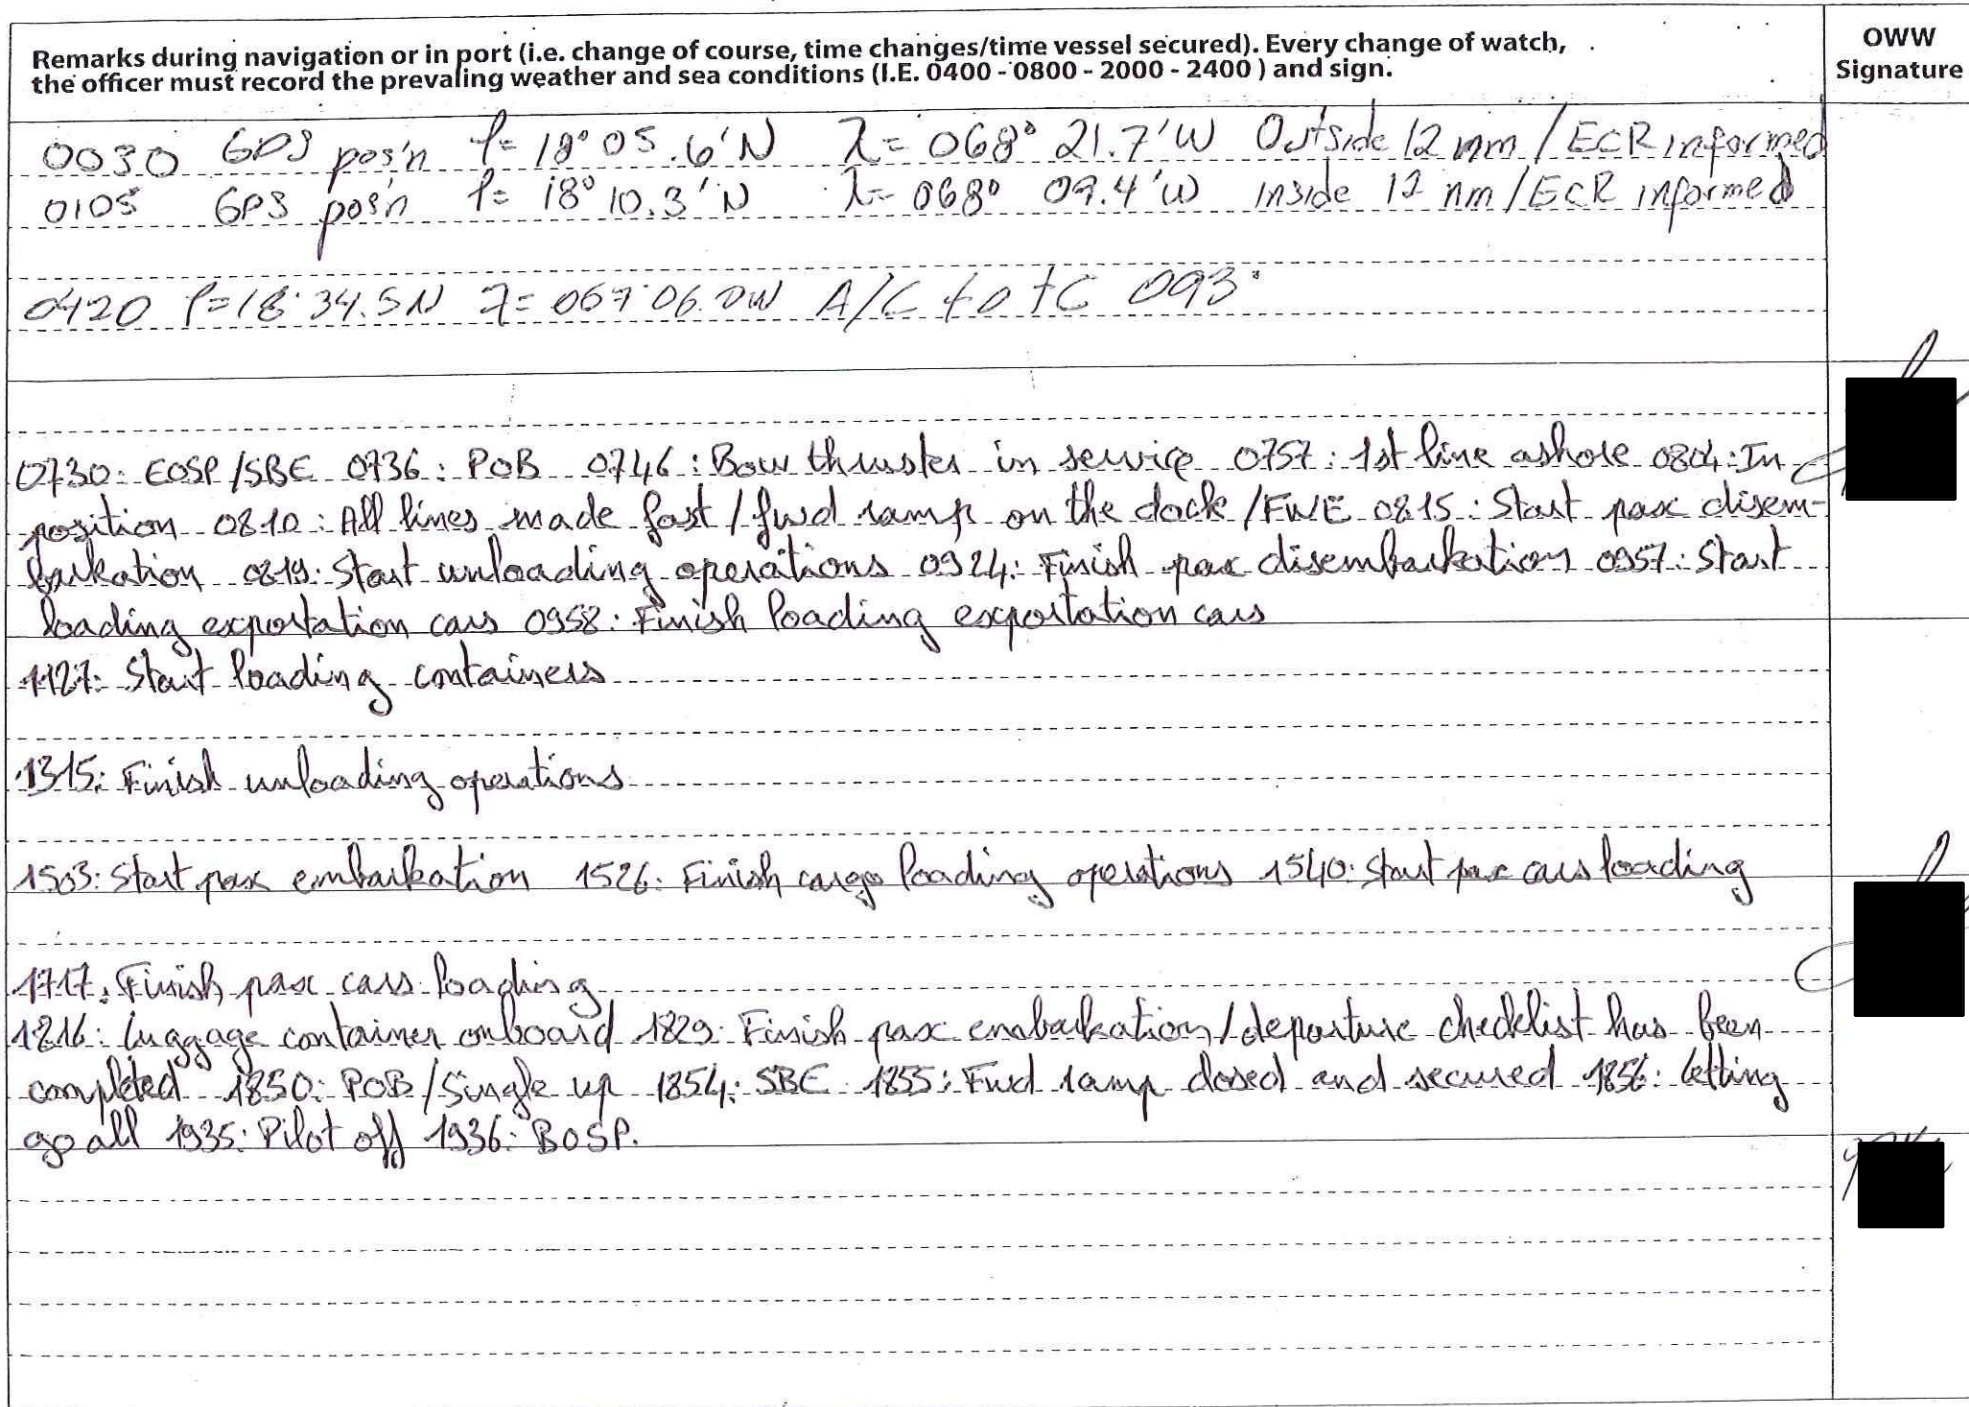 Remarks during navigation or in port (i.e. change of course, time changes/time vessel secured). Every change of watch,
the officer must record the prevaling weather and sea conditions (I.E. 0400 - 0800 - 2000 - 2400 ) and sign.
OWW
Signature
0030 GPS pos'n φ= 18° 05.6'N λ= 068° 21.7'W Outside 12 nm / ECR informed
0105 GPS pos'n φ= 18° 10.3'N λ= 068° 09.4'W inside 12 nm / ECR informed
0420 φ=18°34.5N λ= 067°06.0W A/C to tC 093°
0730: EOSP/SBE 0736: POB 0746: Bow thruster in service 0757: 1st line ashore 0804: In
position 0810: All lines made fast / fwd ramp on the dock / FWE 0815: Start pax disem-
barkation 0819: Start unloading operations 0924: Finish pax disembarkation 0957: Start
loading exportation cars 0958: Finish loading exportation cars
1127: Start loading containers
1315: Finish unloading operations
1503: Start pax embarkation 1526: Finish cargo loading operations 1540: Start pax cars loading
1717: Finish pax cars loading
1816: Luggage container onboard 1829: Finish pax embarkation/departure checklist has been
completed 1850: POB/Single up 1854: SBE 1855: Fwd ramp closed and secured 1856: letting
go all 1935: Pilot off 1936: BOSP.